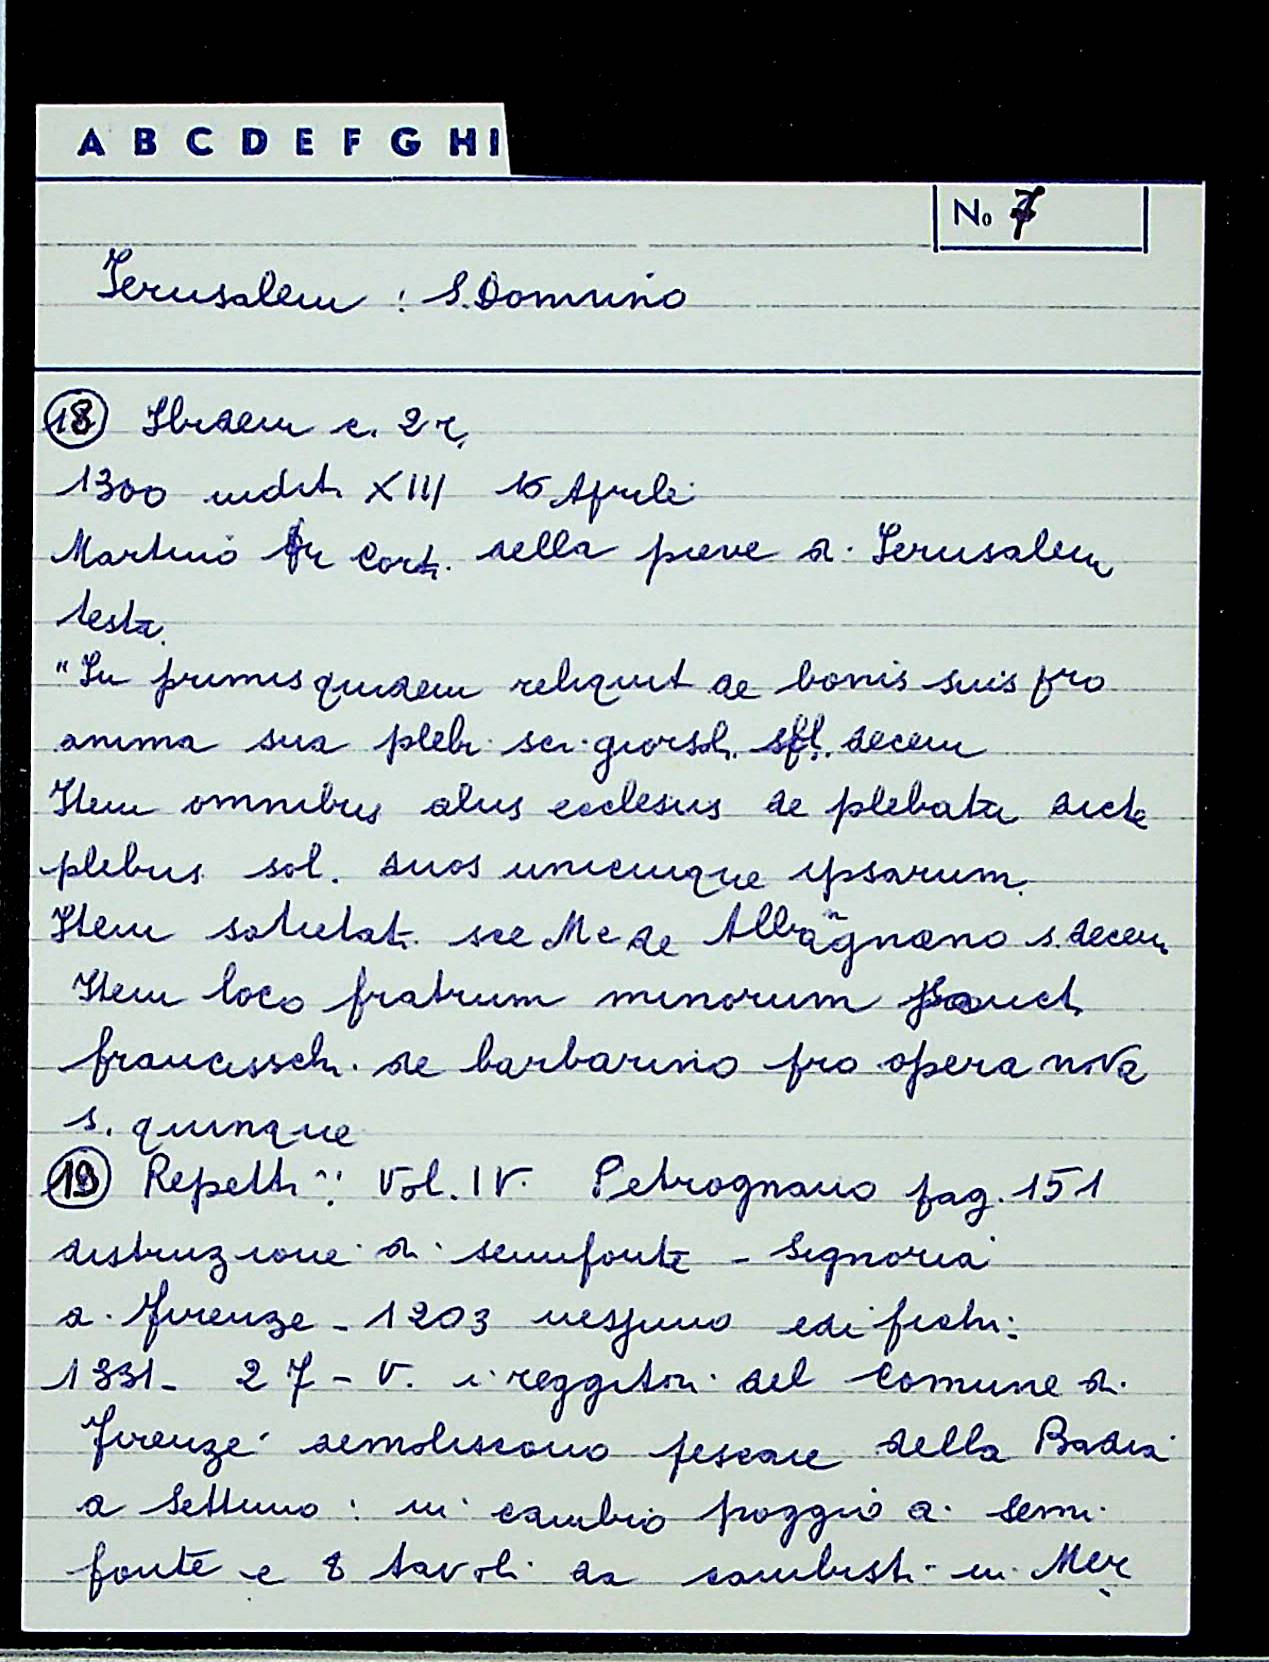 A B C D E F G H I
No 7
Jerusalem : S. Donnino
18 Ibidem c. 2 r.
1300 indit. XIII 16 Aprile
Martino Cort. della pieve di Jerusalem
testa.
"In primis quidem reliquit de bonis suis pro
anima sua pleb. sci. giorsol. decem
Item omnibus aliis ecclesiis de plebatu dicte
plebis sol. duos unicuique ipsarum.
Item sce Me de s. decem
Item loco fratrum minorum sanct.
francissch. de barbarino pro opera nova
s. quinque
19 Repetti: Vol. IV. Petrognano pag. 151
distruzione di semifonte - Signoria
a. Firenze - 1203 nessuno edifichi:
1331 - 27 - V. i reggitori del Comune di
firenze demoliscono pescaie della Badia
a Settimo : in cambio poggio a semi
fonte e 8 tavoli da cambisti in Mer